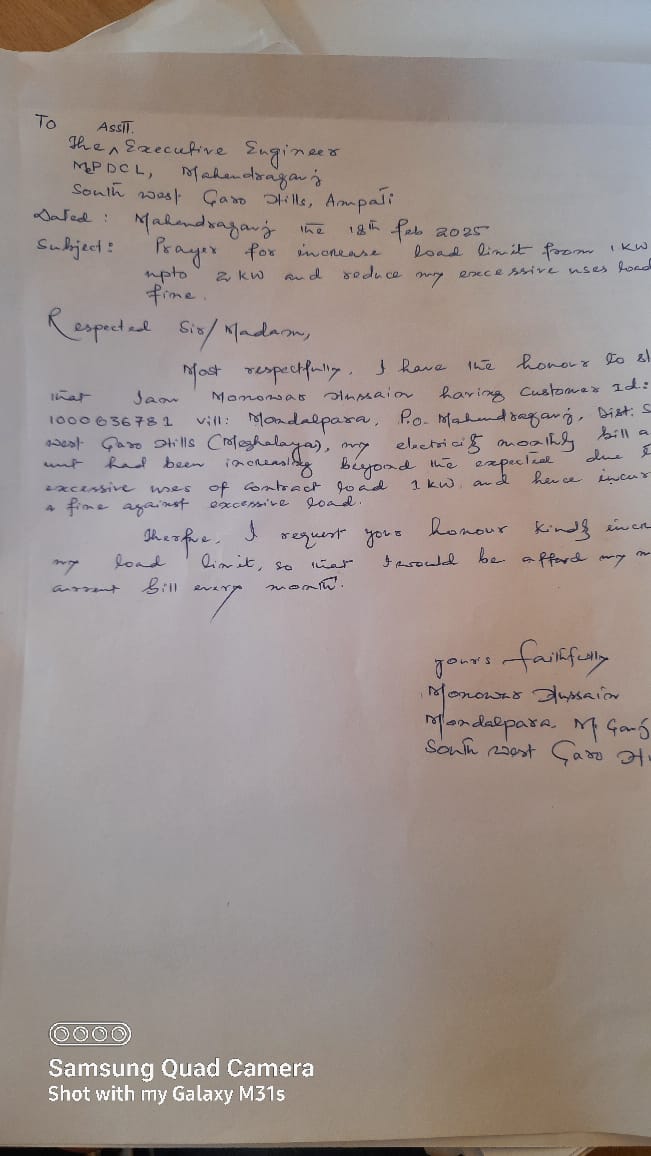 To
Asstt.
The ^ Executive Engineer
MePDCL, Mahendraganj
South west Garo Hills, Ampati
Dated: Mahendraganj the 18th feb 2025
Subject: Prayer for increase load limit from 1 KW
upto 2 kw and reduce my excessive uses load
fine.
Respected Sir/Madam,
Most respectfully, I have the honour to
that I am Monowar Hussain having Customer Id:
1000636781 vill: Mondalpara, P.o. Mahendraganj, Dist. S
west Garo Hills (Meghalaya), my electricity monthly bill a
unt had been increasing beyond the expected due
excessive uses of contract load 1 kw, and hence incur
a fine against excessive load.
Therfre, I request your honour kindly incr
my load limit, so that I would be afford my m
current bill every month.
yours faithfully
Monowar Hussain
Mondalpara M Ganj
South west Garo Hi
OOOO
Samsung Quad Camera
Shot with my Galaxy M31s